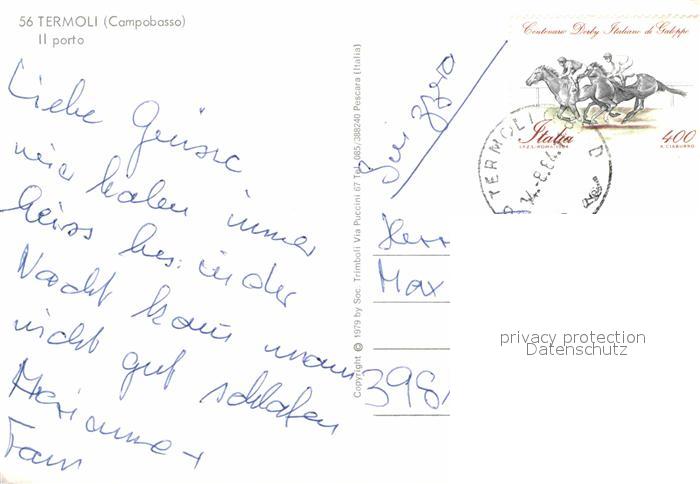 56 TERMOLI (Campobasso)
Il porto
Liebe Grüsse
wir haben immer
heiss bes: in der
Nacht kann man
nicht gut schlafen
Marianne +
Fam
Copyright © 1979 by Soc. Trimboli Via Puccini 67 Tel. 085/388240 Pescara (Italia)
Centenario Derby Italiano di Galoppo
Italia
400
I.P.Z.S.-ROMA-1984
A. CIABURRO
TERMOLI
Svizzera
Herr
Max
398
privacy protection
Datenschutz